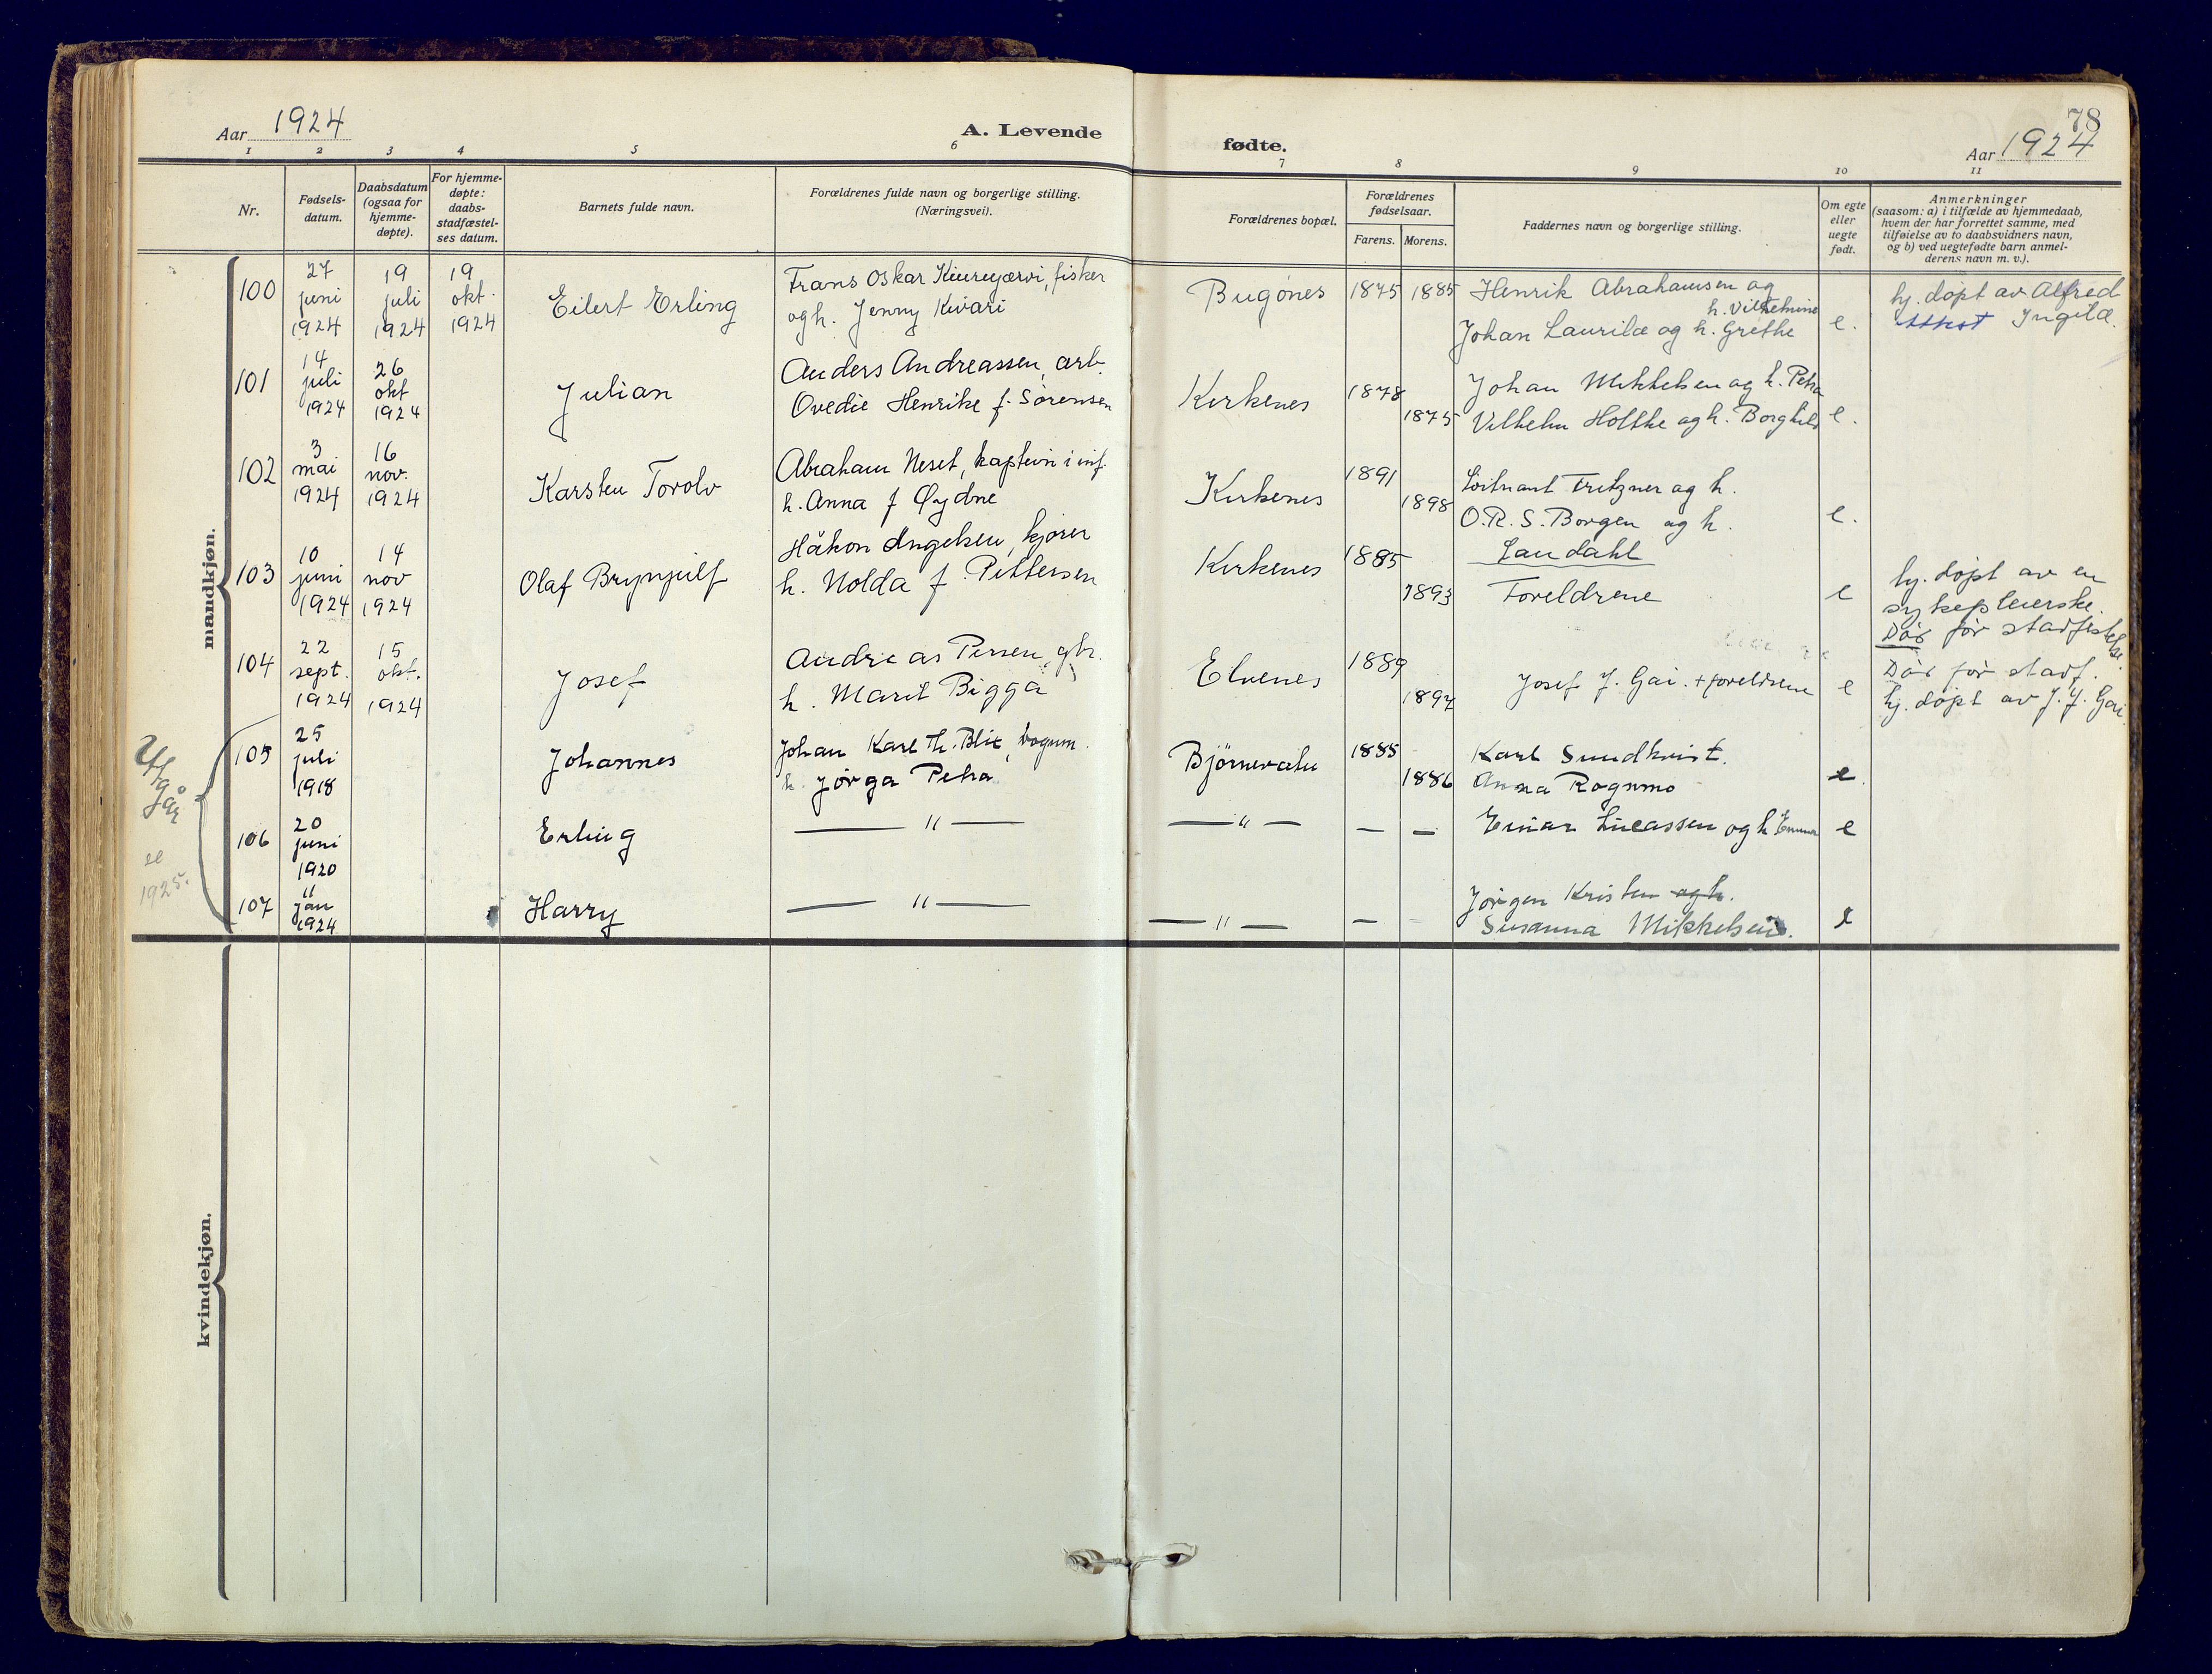 Aar 1924
A. Levende
fødte.
78
Aar 1924
1 2 3 4 5 6 7 8 9 10 11
Nr.
Fødsels-
datum.
Daabsdatum
(ogsaa for
hjemme-
døpte).
For hjemme-
døpte:
daabs-
stadfæstel-
ses datum.
Barnets fulde navn.
Forældrenes fulde navn og borgerlige stilling.
(Næringsvei).
Forældrenes bopæl.
Forældrenes
fødselsaar.
Farens. Morens.
Faddernes navn og borgerlige stilling.
Om egte
eller
uegte
født.
Anmerkninger
(saasom: a) i tilfælde av hjemmedaab,
hvem der har forrettet samme, med
tilføielse av to daabsvidners navn,
og b) ved uegtefødte barn anmel-
derens navn m. v.).
mandkjøn.
100
27
juni
1924
19
juli
1924
19
okt.
1924
Eilert Erling
Frans Oskar Kiurujærvi, fisker
og h. Jenny Kivari
Bugönes
1875 1885
Henrik Abrahamsen og
h. Vilhelmine
Johan Laurila og h. Grethe
e.
hj. döpt av Alfred
Ingilæ.
101
14
juli
1924
26
okt
1924
Julian
Anders Andreassen, arb.
Ovedie Henrike f. Sörensen
Kirkenes
1878
1875
Johan Mikkelsen og h. Petra
Vilhelm Holthe og h. Borghild
e.
102
3
mai
1924
16
nov.
1924
Karsten Torolv
Abraham Neset, kaptein i inf.
h. Anna f Øydne
Kirkenes
1891
1898
Löitnant Fritzner og h.
O.R.S. Borgen og h.
e.
103
10
juni
1924
14
nov
1924
Olaf Brynjulf
Håkon Ingelsen, kjörer
h. Nolda f. Pettersen
Kirkenes
1885
1893
Landahl
Foreldrene
e
hj. döpt av en
sykepleierske.
Död för stadfestelse
104
22
sept.
1924
15
okt.
1924
Josef
Andreas Persen, gbr.
h. Marit Bigga
Elvenes
1889
1897
Josef J. Gai. + foreldrene
e
Död för stadf.
hj. döpt av J. J. Gai
Utgår
se
1925.
105
25
juli
1918
Johannes
Johan Karl Th. Blix, vognm.
h. Jörga Petra
Björnevatn
1885
1886
Karl Sundkvist.
Anna Rognmo
e.
106
20
juni
1920
Erling
— " —
— " —
— —
Einar Lucassen og h Emma
e
107
11
jan
1924
Harry
— " —
— " —
—
Jörgen Kristen og h.
Susanna Mikkelsen.
e
kvindekjøn.